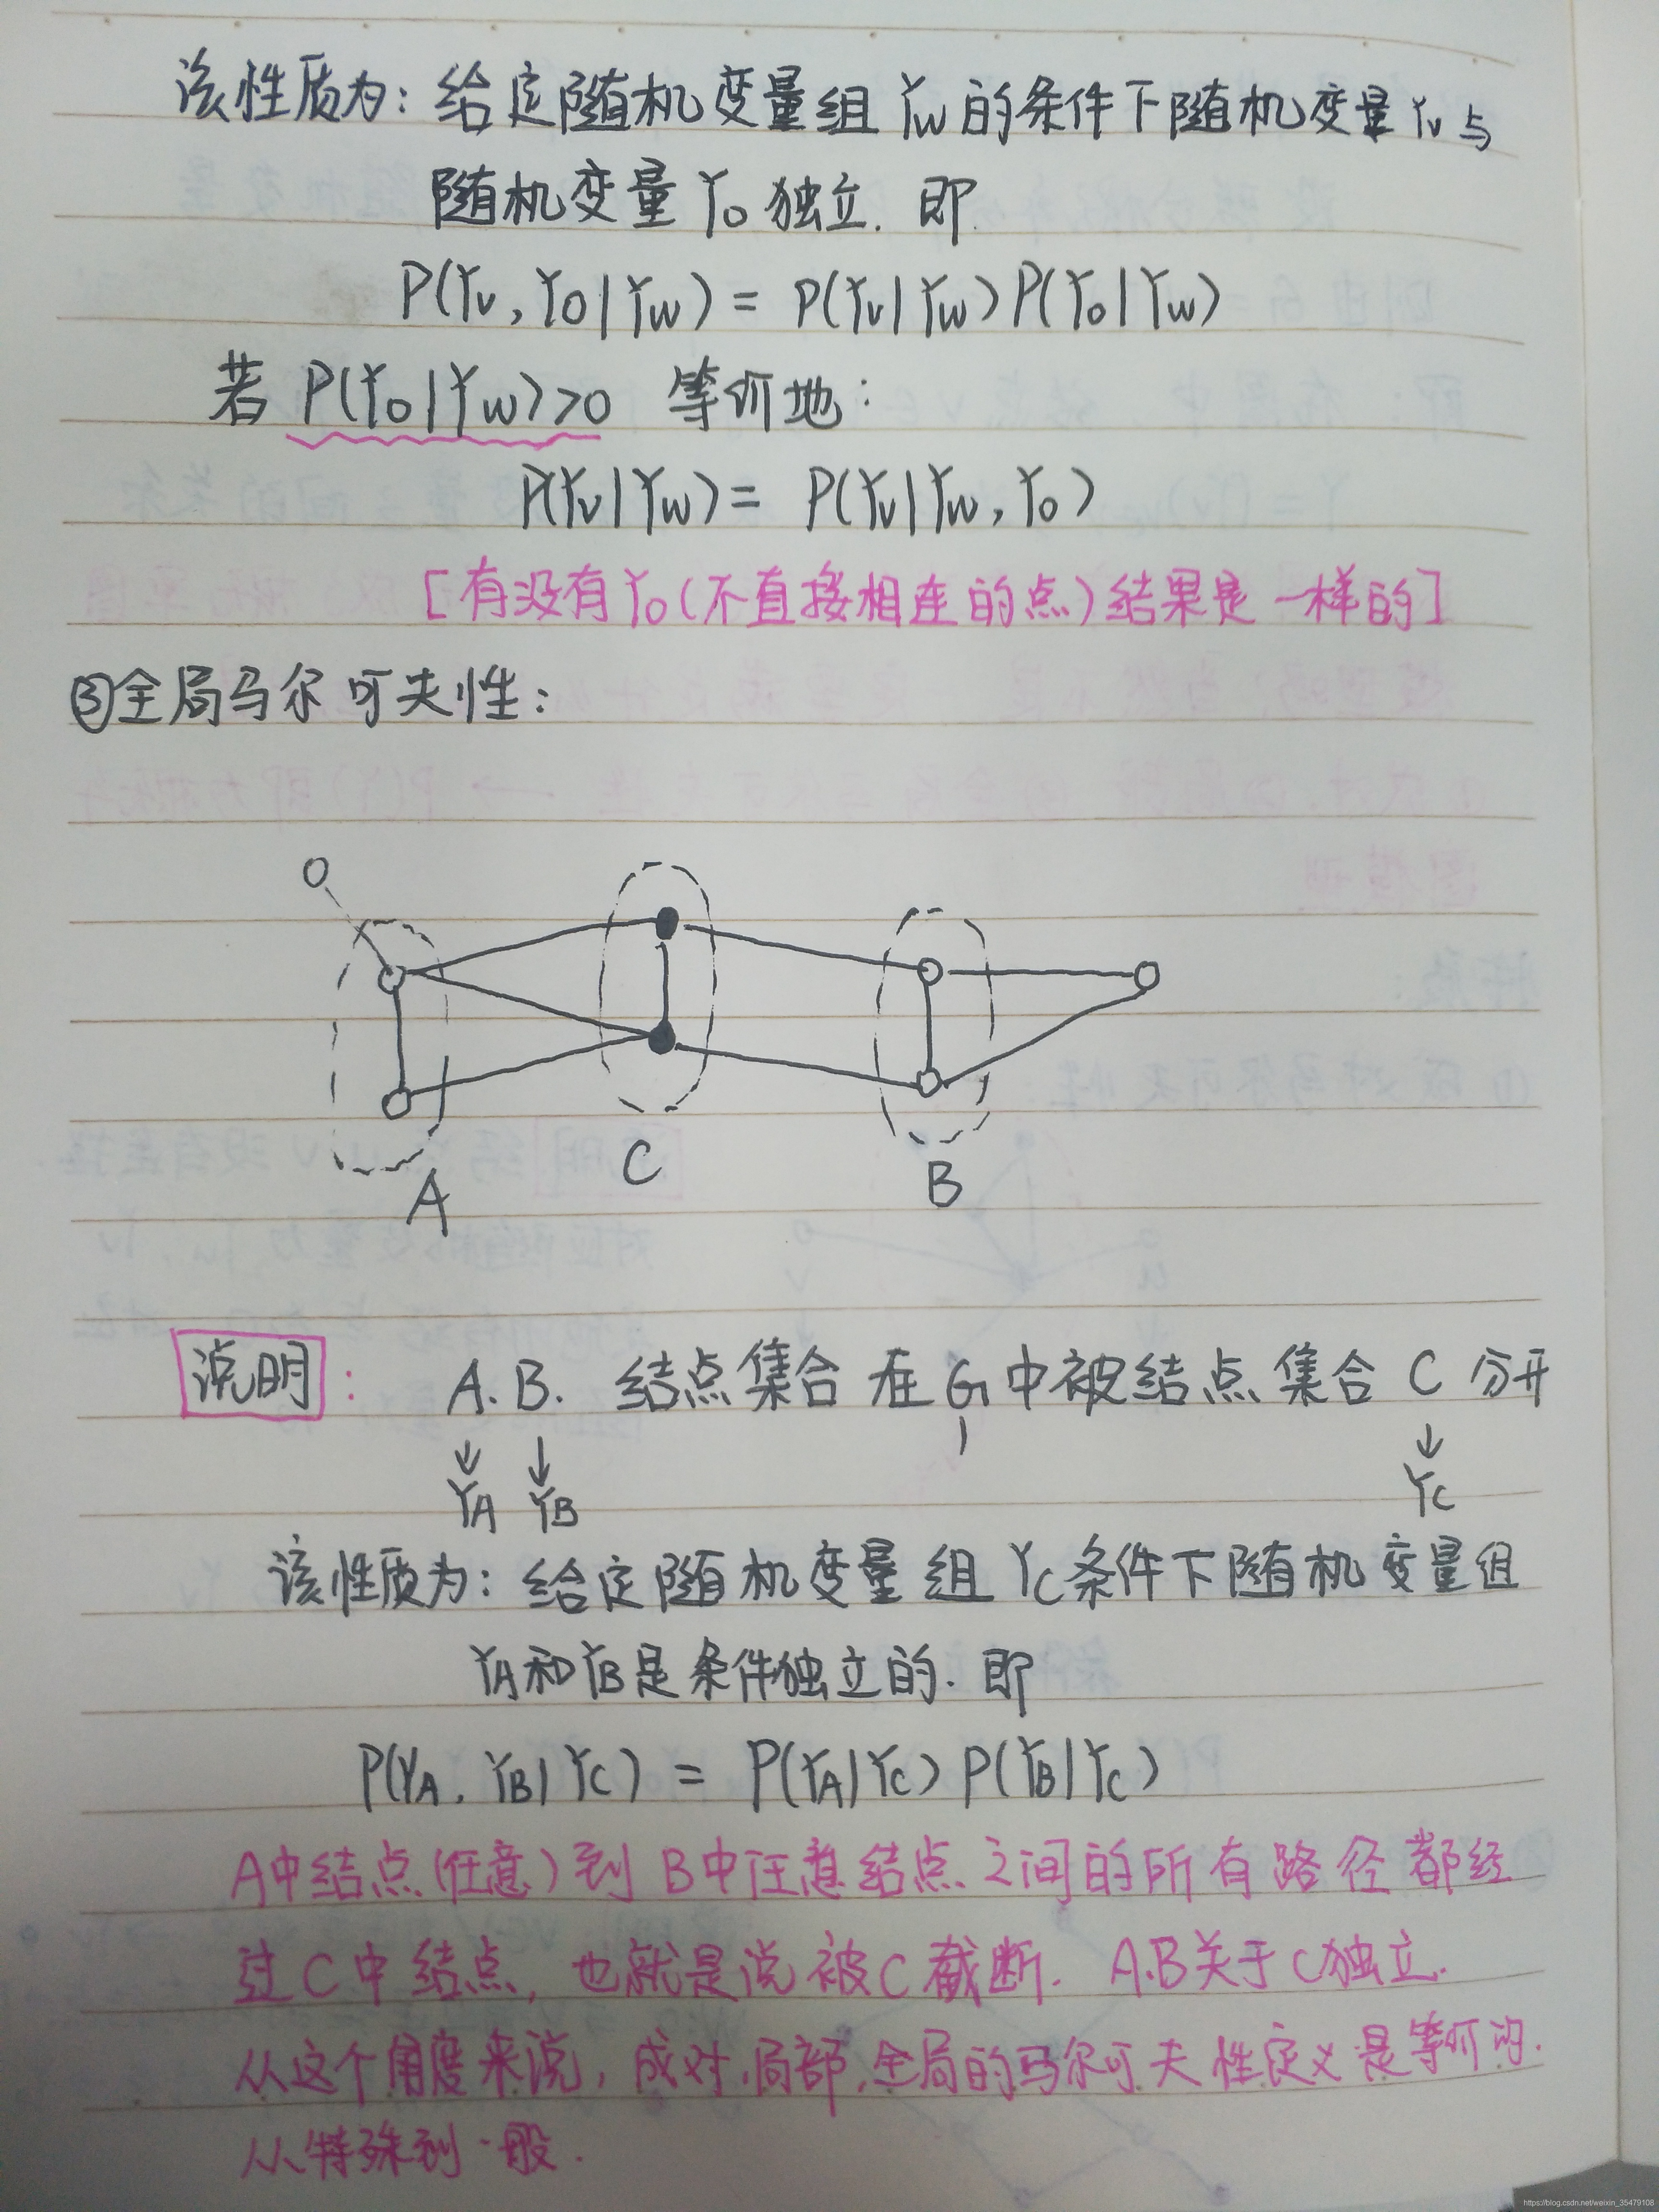 该性质为：给定随机变量组 Yw 的条件下随机变量 Yv 与
随机变量 Yo 独立. 即
P(Yv, Yo|Yw) = P(Yv|Yw)P(Yo|Yw)
若 P(Yo|Yw)>0 等价地：
P(Yv|Yw) = P(Yv|Yw, Yo)
[有没有Yo(不直接相连的点)结果是一样的]
③全局马尔可夫性：
C
B
A
说明： A.B. 结点集合在G中被结点集合 C 分开
↓ ↓ ↓
YA YB YC
该性质为：给定随机变量组 Yc条件下随机变量组
YA和YB是条件独立的. 即
P(YA, YB|YC) = P(YA|YC) P(YB|YC)
A中结点(任意)到B中任意结点之间的所有路径都经
过C中结点，也就是说被C截断. A.B关于C独立.
从这个角度来说，成对,局部,全局的马尔可夫性定义是等价的.
从特殊到一般.
https://blog.csdn.net/weixin_35479108